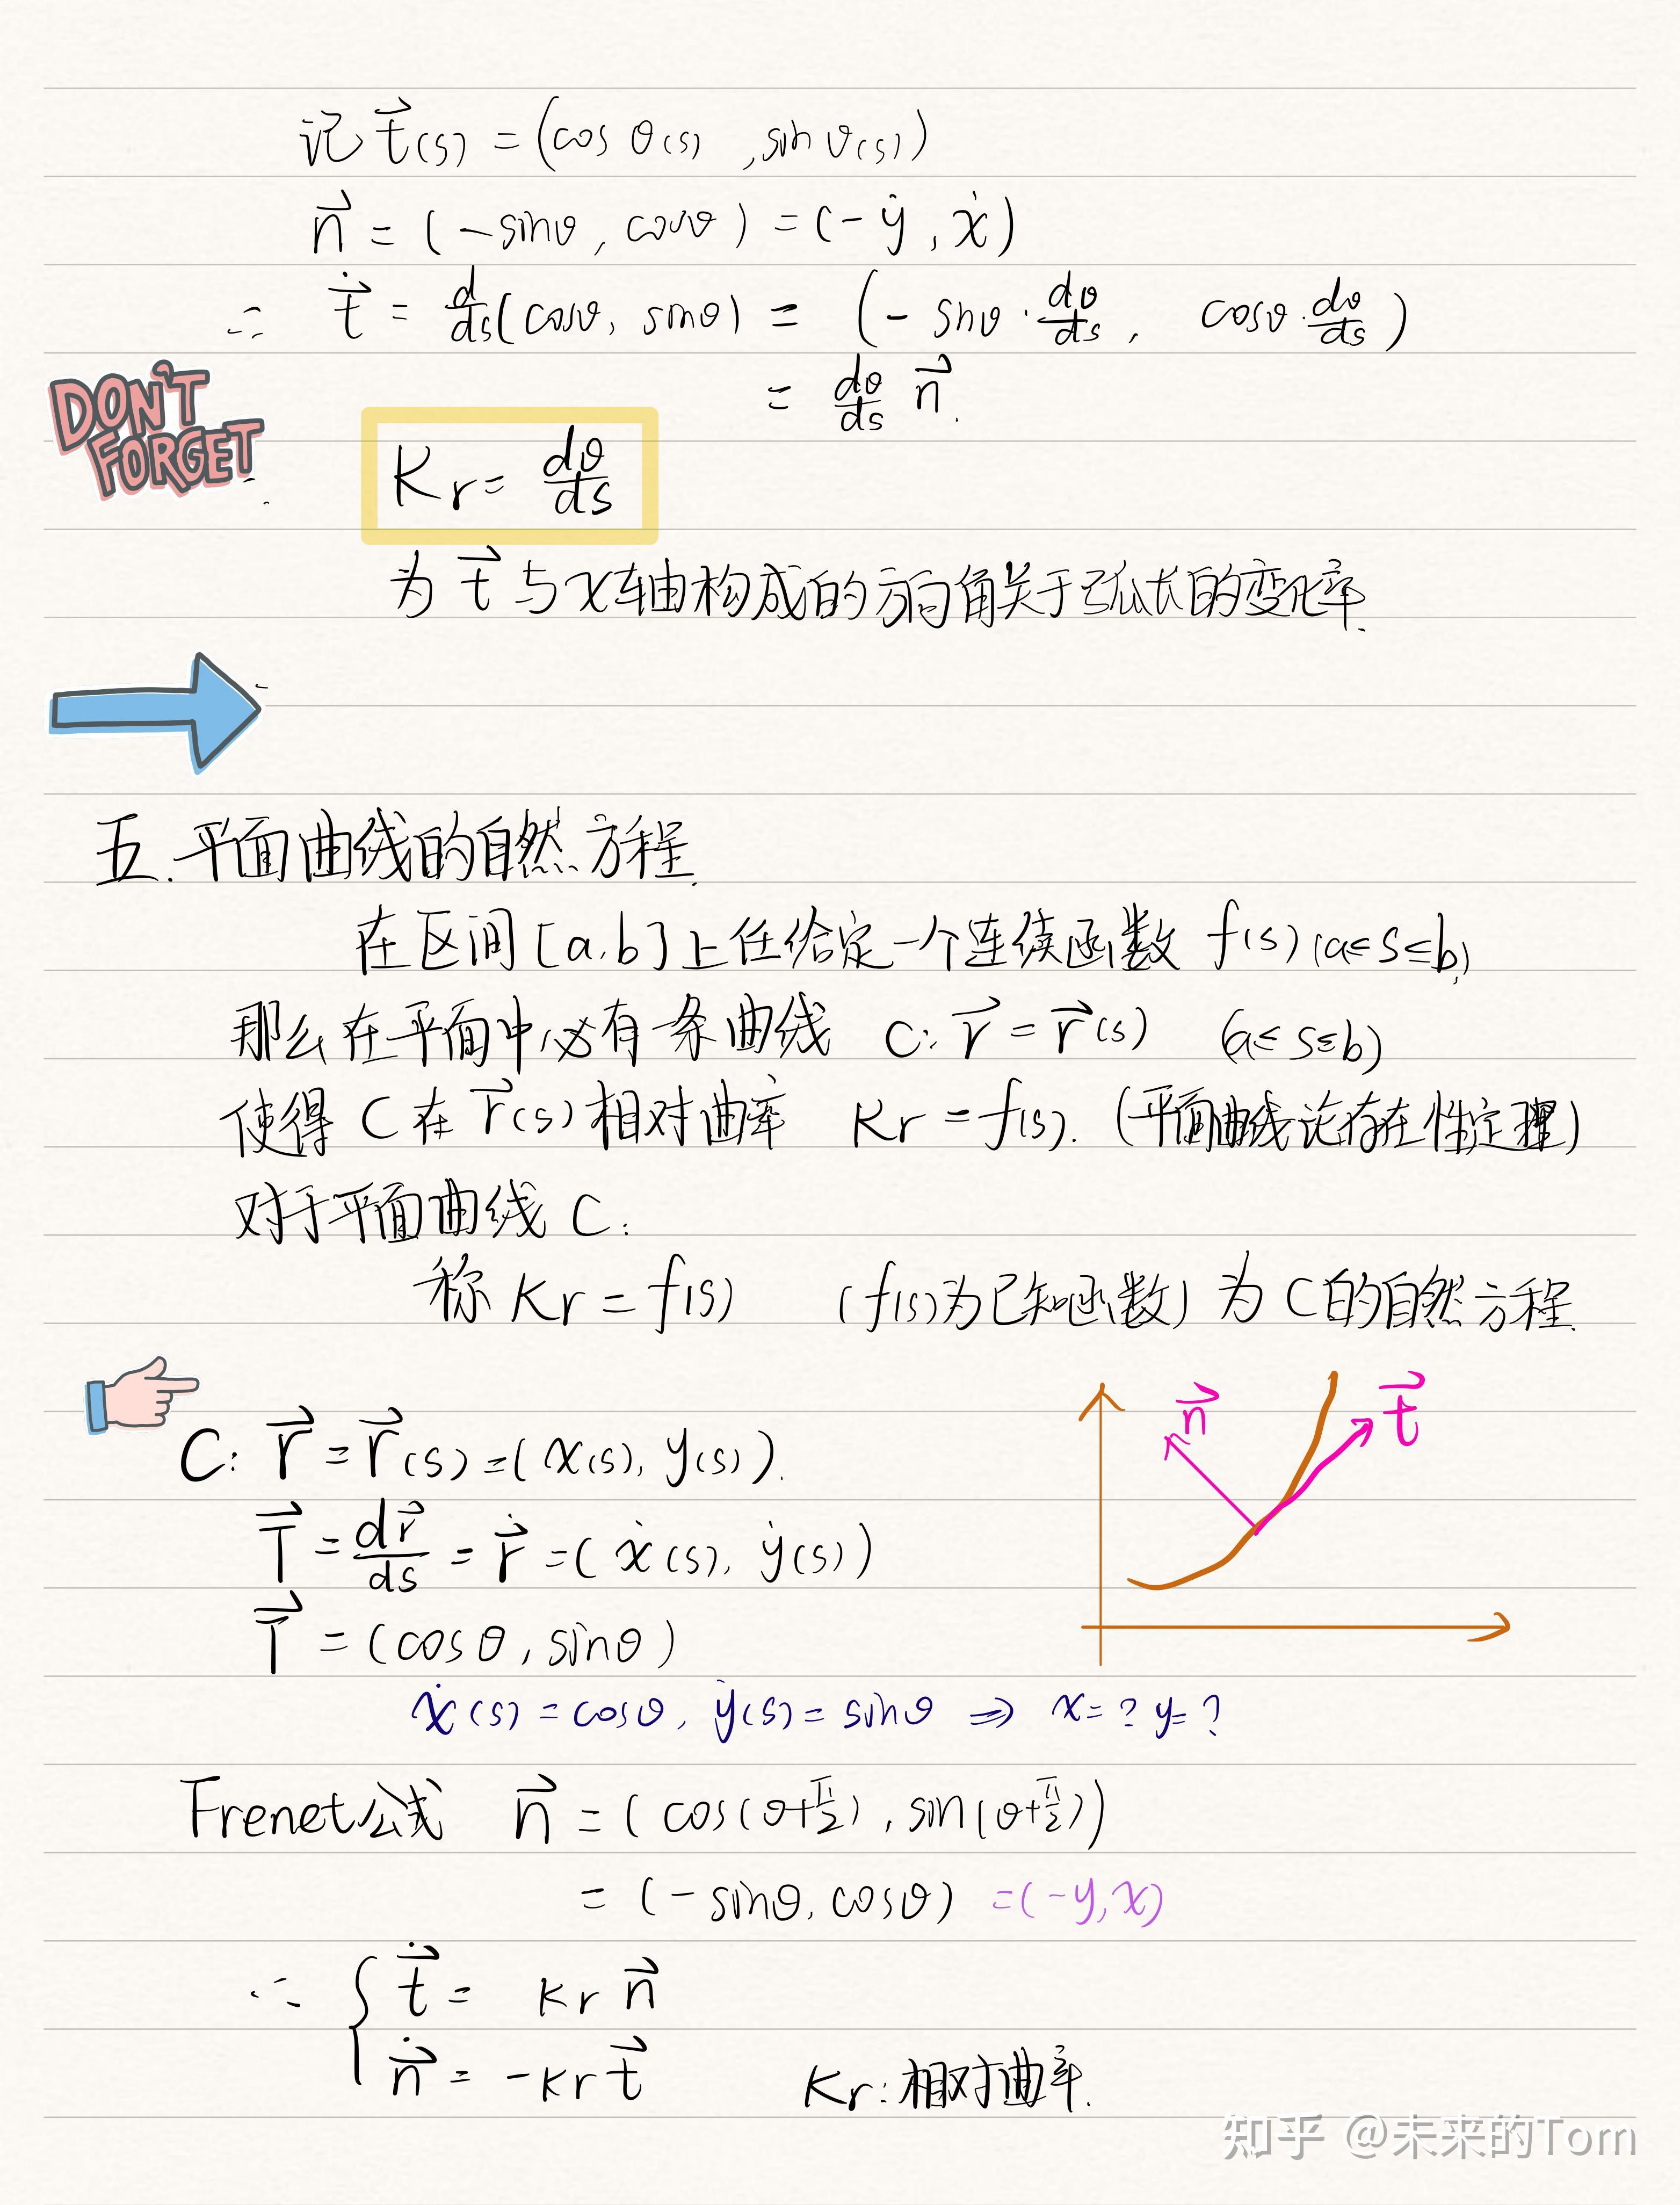 记 t⃗(s) = (cos θ(s) , sin θ(s))
n⃗ = (-sinθ, cosθ) = (-ẏ, ẋ)
∴ t⃗̇ = d/ds(cosθ, sinθ) = (- sinθ · dθ/ds, cosθ · dθ/ds)
= dθ/ds n⃗.
DON'T
FORGET
∴ Kr = dθ/ds
为 t⃗ 与 x轴构成的方向角关于弧长的变化率.
五.平面曲线的自然方程.
在区间[a,b]上任给定一个连续函数 f(s) (a≤s≤b)
那么在平面中必有一条曲线 C: r⃗ = r⃗(s) (a≤s≤b)
使得 C 在 r⃗(s) 相对曲率 Kr = f(s). (平面曲线论存在性定理)
对于平面曲线 C:
称 Kr = f(s) (f(s)为已知函数) 为 C的自然方程.
n⃗ t⃗
C: r⃗ = r⃗(s) = (x(s), y(s)).
T⃗ = dr⃗/ds = r⃗̇ = (ẋ(s), ẏ(s))
T⃗ = (cosθ, sinθ)
ẋ(s) = cosθ, ẏ(s) = sinθ ⇒ x=? y=?
Frenet公式 n⃗ = (cos(θ+π/2), sin(θ+π/2))
= (-sinθ, cosθ) =(-y,x)
∴ { t⃗̇ = Kr n⃗
n⃗̇ = -Kr t⃗ Kr:相对曲率.
知乎 @未来的Tom